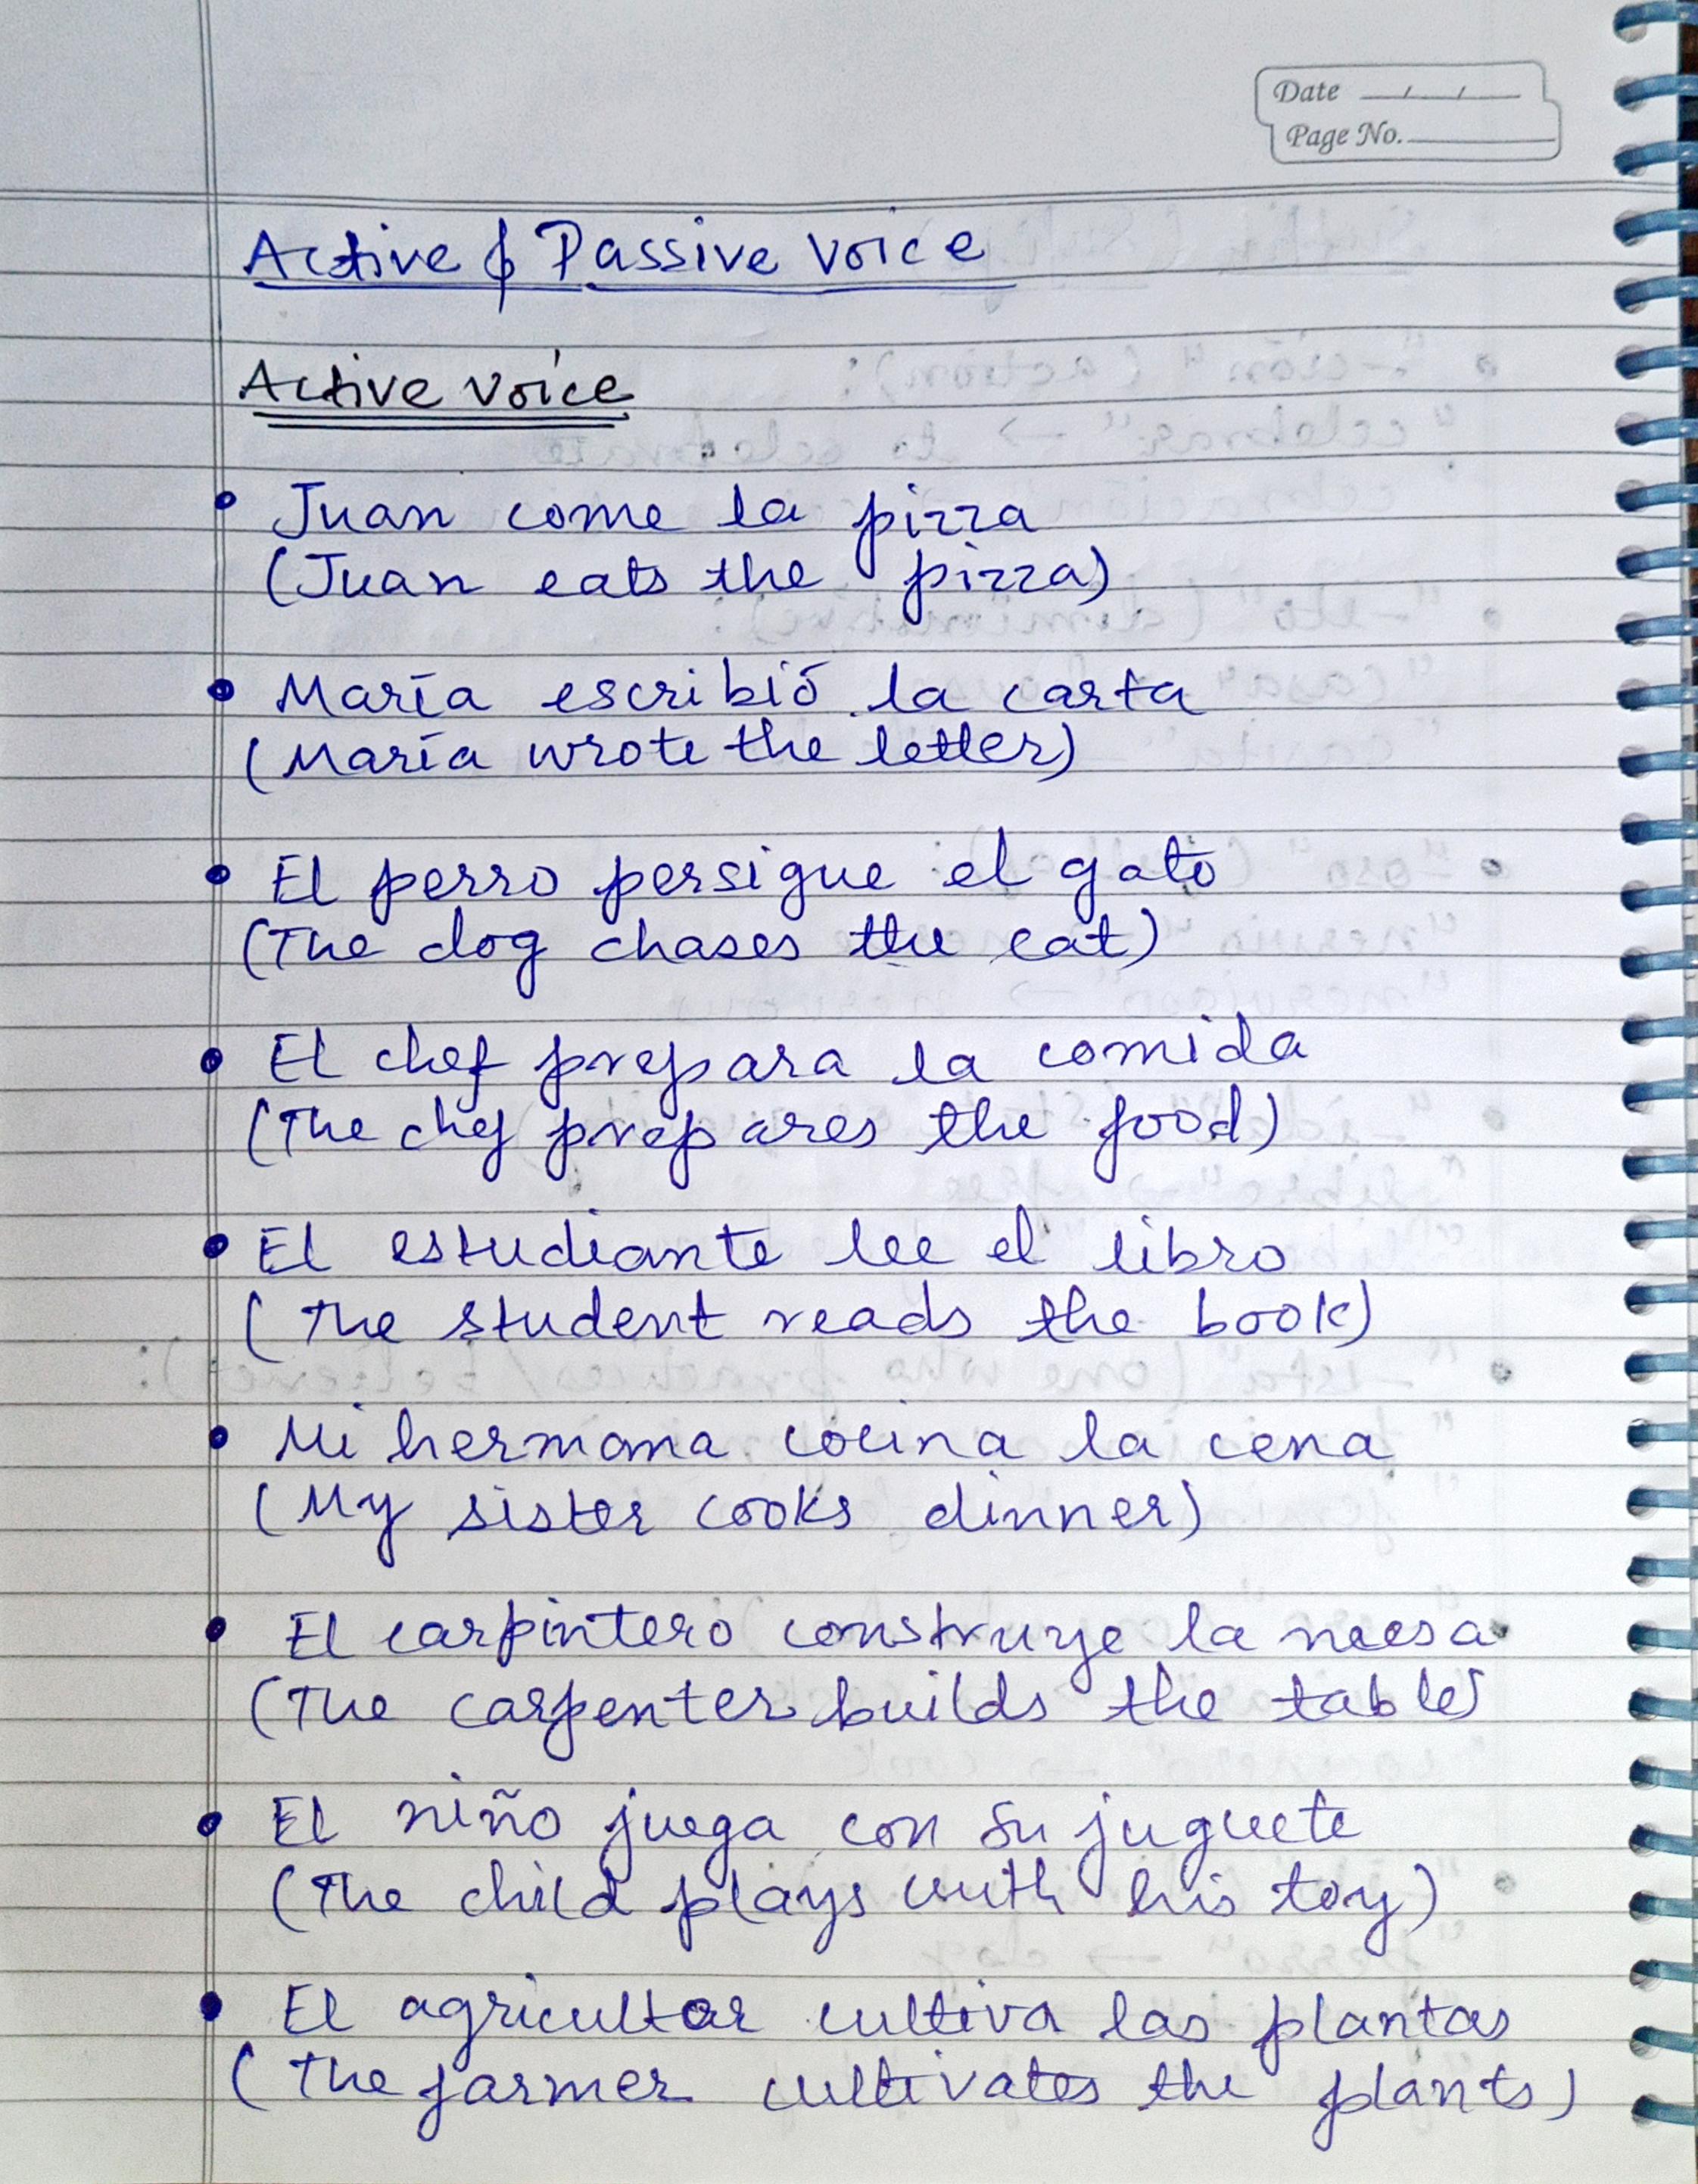 Date / /
Page No.
Active & Passive Voice
Active Voice
• Juan come la pizza
(Juan eats the pizza)
• María escribió la carta
(María wrote the letter)
• El perro persigue el gato
(The dog chases the cat)
• El chef prepara la comida
(The chef prepares the food)
• El estudiante lee el libro
(The student reads the book)
• Mi hermana cocina la cena
(My sister cooks dinner)
• El carpintero construye la mesa
(The carpenter builds the table)
• El niño juega con su juguete
(The child plays with his toy)
• El agricultor cultiva las plantas
(The farmer cultivates the plants)